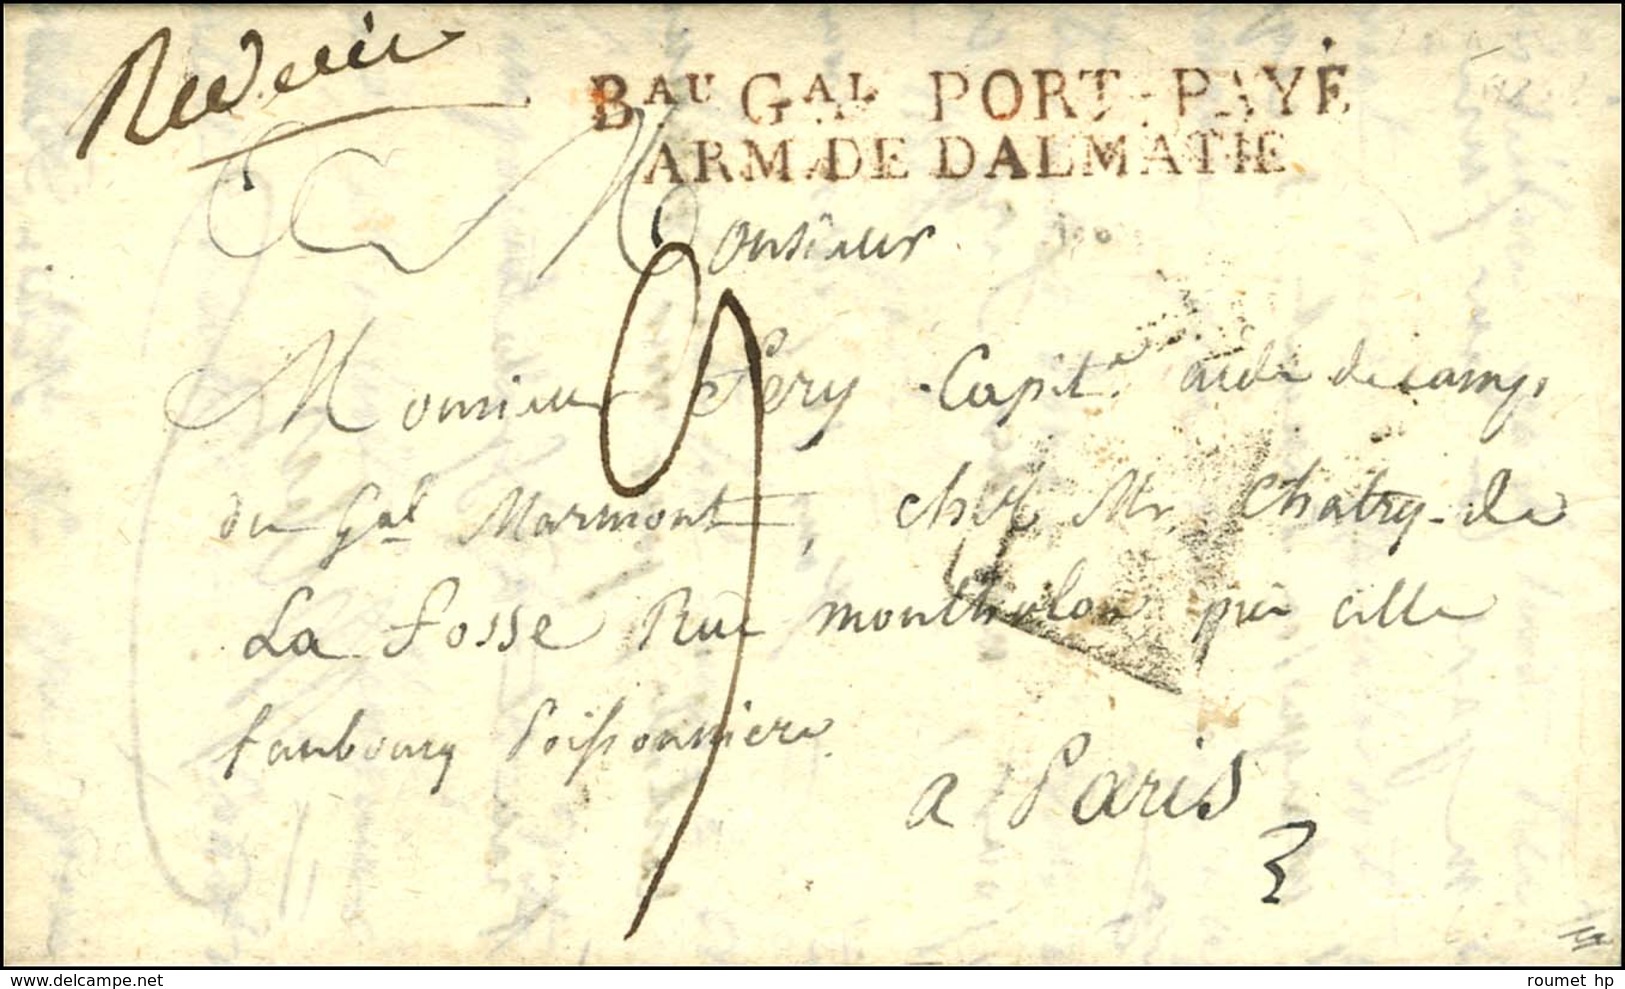 Bau Gal PORT-PAYÉ
ARM. DE DALMATIE
Monsieur
Monsieur Fery Capit.e aide de camp
du Gal Marmont, chez Mr. Chatry-de
La fosse Rue montholon près celle
faubourg Poissonniere
a Paris
roumet hp